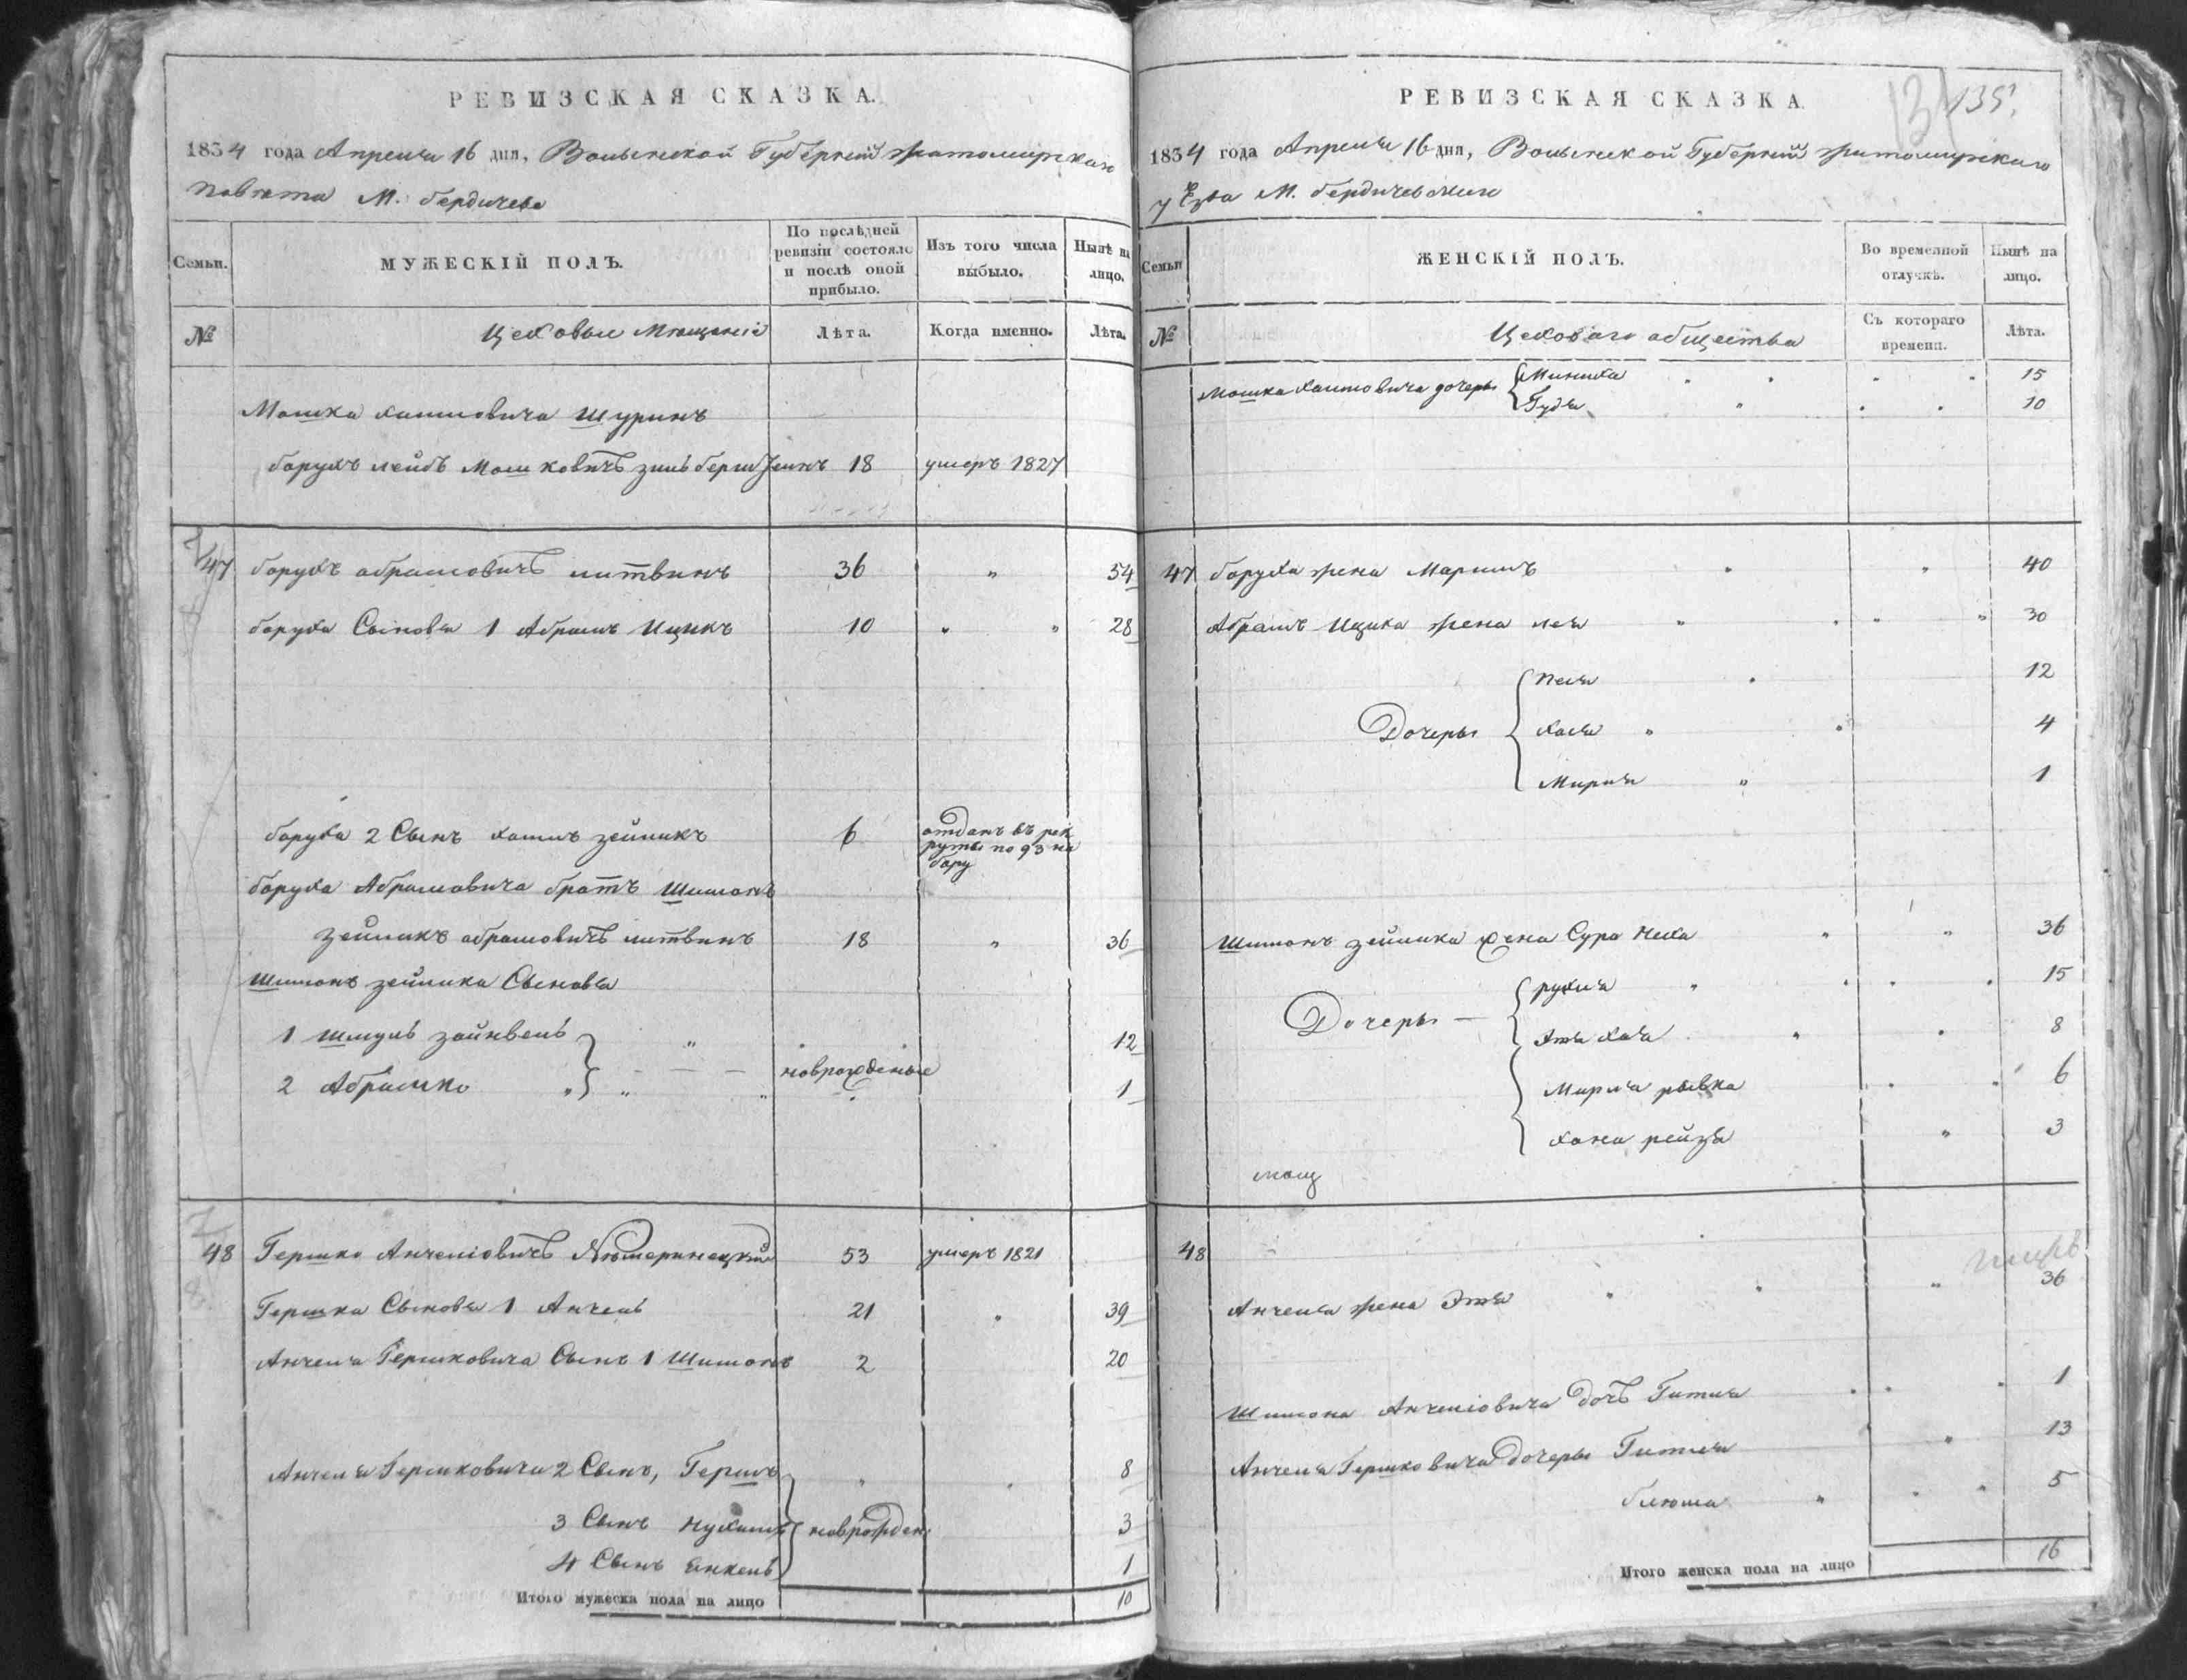 РЕВИЗСКАЯ СКАЗКА.
1834 года Апреля 16 дня, Волынской Губернии Житомирскаго
Повета М. Бердичева
Семьи.
МУЖЕСКІЙ ПОЛЪ.
По послѣдней
ревизіи состояло
и послѣ оной
прибыло.
Изъ того числа
выбыло.
Нынѣ на
лицо.
№
Цеховые Мещане
Лѣта.
Когда именно.
Лѣта.
Мошка Хаимовича Шуринъ
Борухъ Лейбъ Мошковичъ 18 умеръ 1827
47 Борухъ Абрамовичъ Литвинъ 36 " 54
Боруха Сыновья 1 Абрамъ Ицикъ 10 " " 28
Боруха 2 Сынъ Хаимъ Зейликъ 6 отданъ въ рек
руты по 93 на
бору
Боруха Абрамовича братъ Шимонъ
Зейликъ Абрамовичъ Литвинъ 18 " 36
Шимонъ Зейлика Сыновья
1 Шмуль Зайнвель " 12
2 Абрамко " " новорожденые 1
48 Гершко Анчелiовичъ 53 умеръ 1821
Гершка Сыновья 1 Анчель 21 " 39
Анчеля Гершковича Сынъ 1 Шимонъ 2 20
Анчеля Гершковича 2 Сынъ, Гершъ " 8
3 Сынъ Нухимъ новрожден. 3
4 Сынъ Янкель 1
Итого мужеска пола на лицо 10
РЕВИЗСКАЯ СКАЗКА.
131 135
1834 года Апреля 16 дня, Волынской Губернии Житомирскаго
уѣзда М. Бердичева
Семьи
ЖЕНСКІЙ ПОЛЪ.
Во временной
отлучкѣ.
Нынѣ на
лицо.
№
Цеховаго общества
Съ котораго
времени.
Лѣта.
Мошка Хаимовича дочеры Минка 15
Гудя 10
47 Боруха жена Маримъ " 40
Абрамъ Ицика жена Лея " " " 30
Песя 12
Дочеры Хася " " 4
Мирля " 1
Шимонъ Зейлика жена Сура Неха " " 36
Рухля " 15
Дочеры — Этя Хая " 8
Мирля Рывка " 6
Хана Рейзя " 3
48
Анчеля жена Этя " 36
Шимона Анчелiовича дочь Гитля 1
Анчеля Гершковича дочеры Гитля " 13
Блюма " 5
Итого женска пола на лицо 16